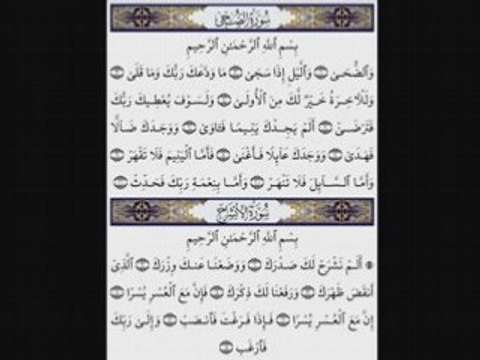 سُورَةُ الضُّحَىٰ
بِسْمِ اللَّهِ الرَّحْمَٰنِ الرَّحِيمِ
وَالضُّحَىٰ ۝ وَاللَّيْلِ إِذَا سَجَىٰ ۝ مَا وَدَّعَكَ رَبُّكَ وَمَا قَلَىٰ ۝
وَلَلْآخِرَةُ خَيْرٌ لَّكَ مِنَ الْأُولَىٰ ۝ وَلَسَوْفَ يُعْطِيكَ رَبُّكَ
فَتَرْضَىٰ ۝ أَلَمْ يَجِدْكَ يَتِيمًا فَآوَىٰ ۝ وَوَجَدَكَ ضَالًّا
فَهَدَىٰ ۝ وَوَجَدَكَ عَائِلًا فَأَغْنَىٰ ۝ فَأَمَّا الْيَتِيمَ فَلَا تَقْهَرْ ۝
وَأَمَّا السَّائِلَ فَلَا تَنْهَرْ ۝ وَأَمَّا بِنِعْمَةِ رَبِّكَ فَحَدِّثْ ۝
سُورَةُ الِانْشِرَاحِ
بِسْمِ اللَّهِ الرَّحْمَٰنِ الرَّحِيمِ
أَلَمْ نَشْرَحْ لَكَ صَدْرَكَ ۝ وَوَضَعْنَا عَنكَ وِزْرَكَ ۝ الَّذِي
أَنقَضَ ظَهْرَكَ ۝ وَرَفَعْنَا لَكَ ذِكْرَكَ ۝ فَإِنَّ مَعَ الْعُسْرِ يُسْرًا ۝
إِنَّ مَعَ الْعُسْرِ يُسْرًا ۝ فَإِذَا فَرَغْتَ فَانصَبْ ۝ وَإِلَىٰ رَبِّكَ
فَارْغَب ۝